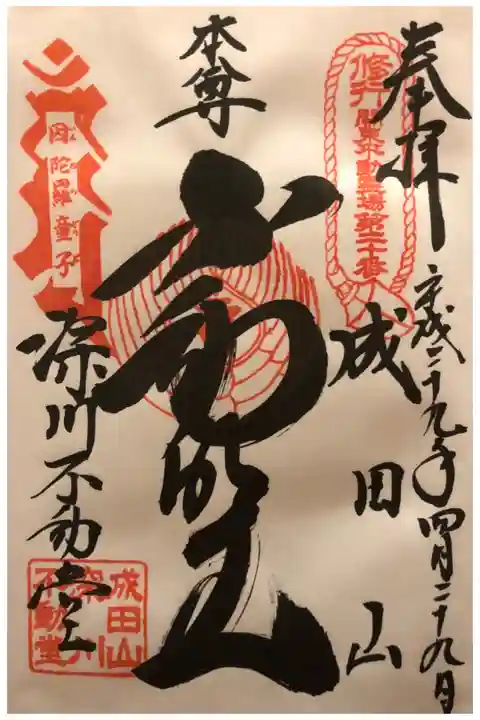 奉拝
平成二十九年四月二十九日
修行
関東不動霊場第二十番
成田山
本尊
不動明王
因陀羅童子
深川不動堂
成田山
深川
不動堂